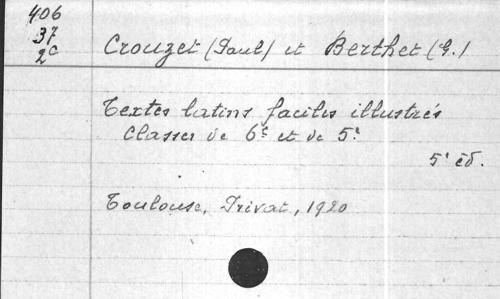 406
37
2c
Crouzet (Paul) et Berthet (G.)
Textes latins faciles illustrés
Classes de 6e et de 5e
5e éd.
Toulouse, Privat, 1920